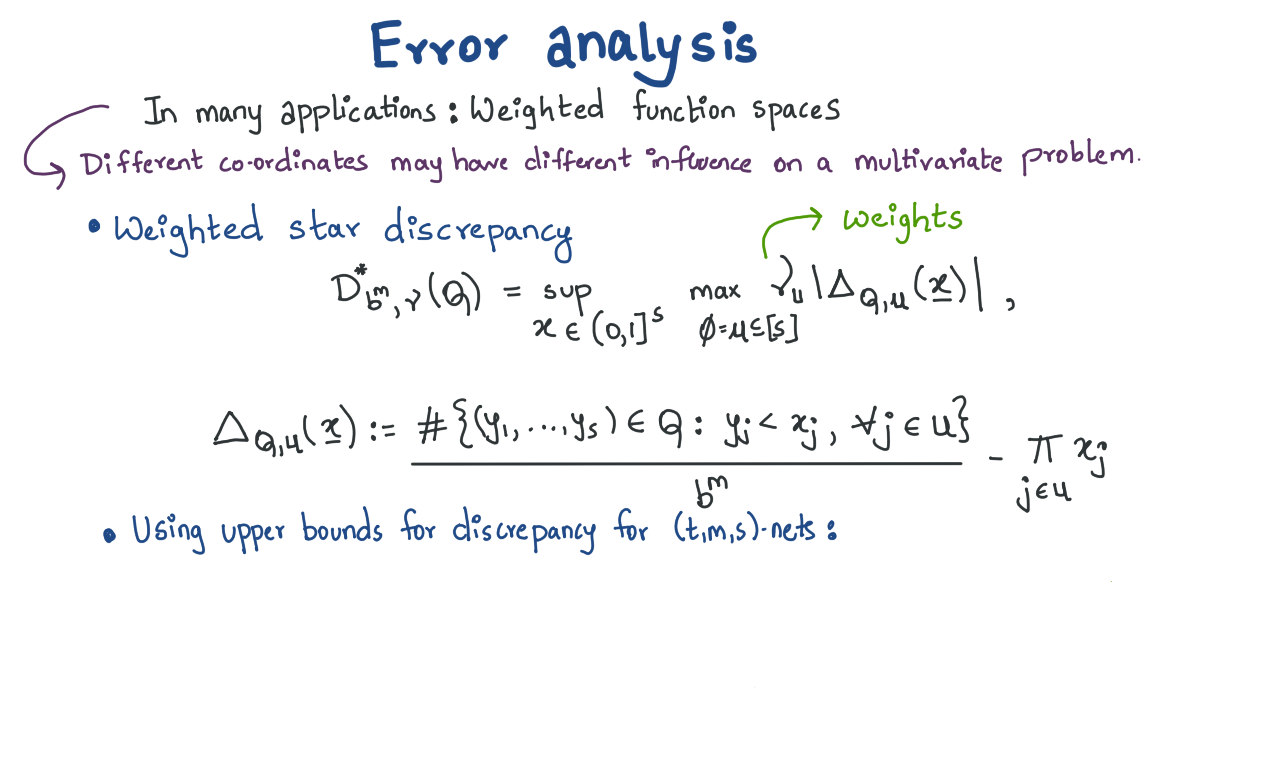 Error analysis
In many applications : Weighted function spaces
Different co-ordinates may have different influence on a multivariate problem.
• Weighted star discrepancy
weights
D*_{b^m, γ}(Q) = sup_{x ∈ (0,1]^s} max_{∅=u⊆[s]} γ_u |Δ_{Q,u}(x)| ,
Δ_{Q,u}(x) := #{(y_1, ..., y_s) ∈ Q : y_j < x_j, ∀j ∈ u} / b^m - ∏_{j∈u} x_j
• Using upper bounds for discrepancy for (t,m,s)-nets :